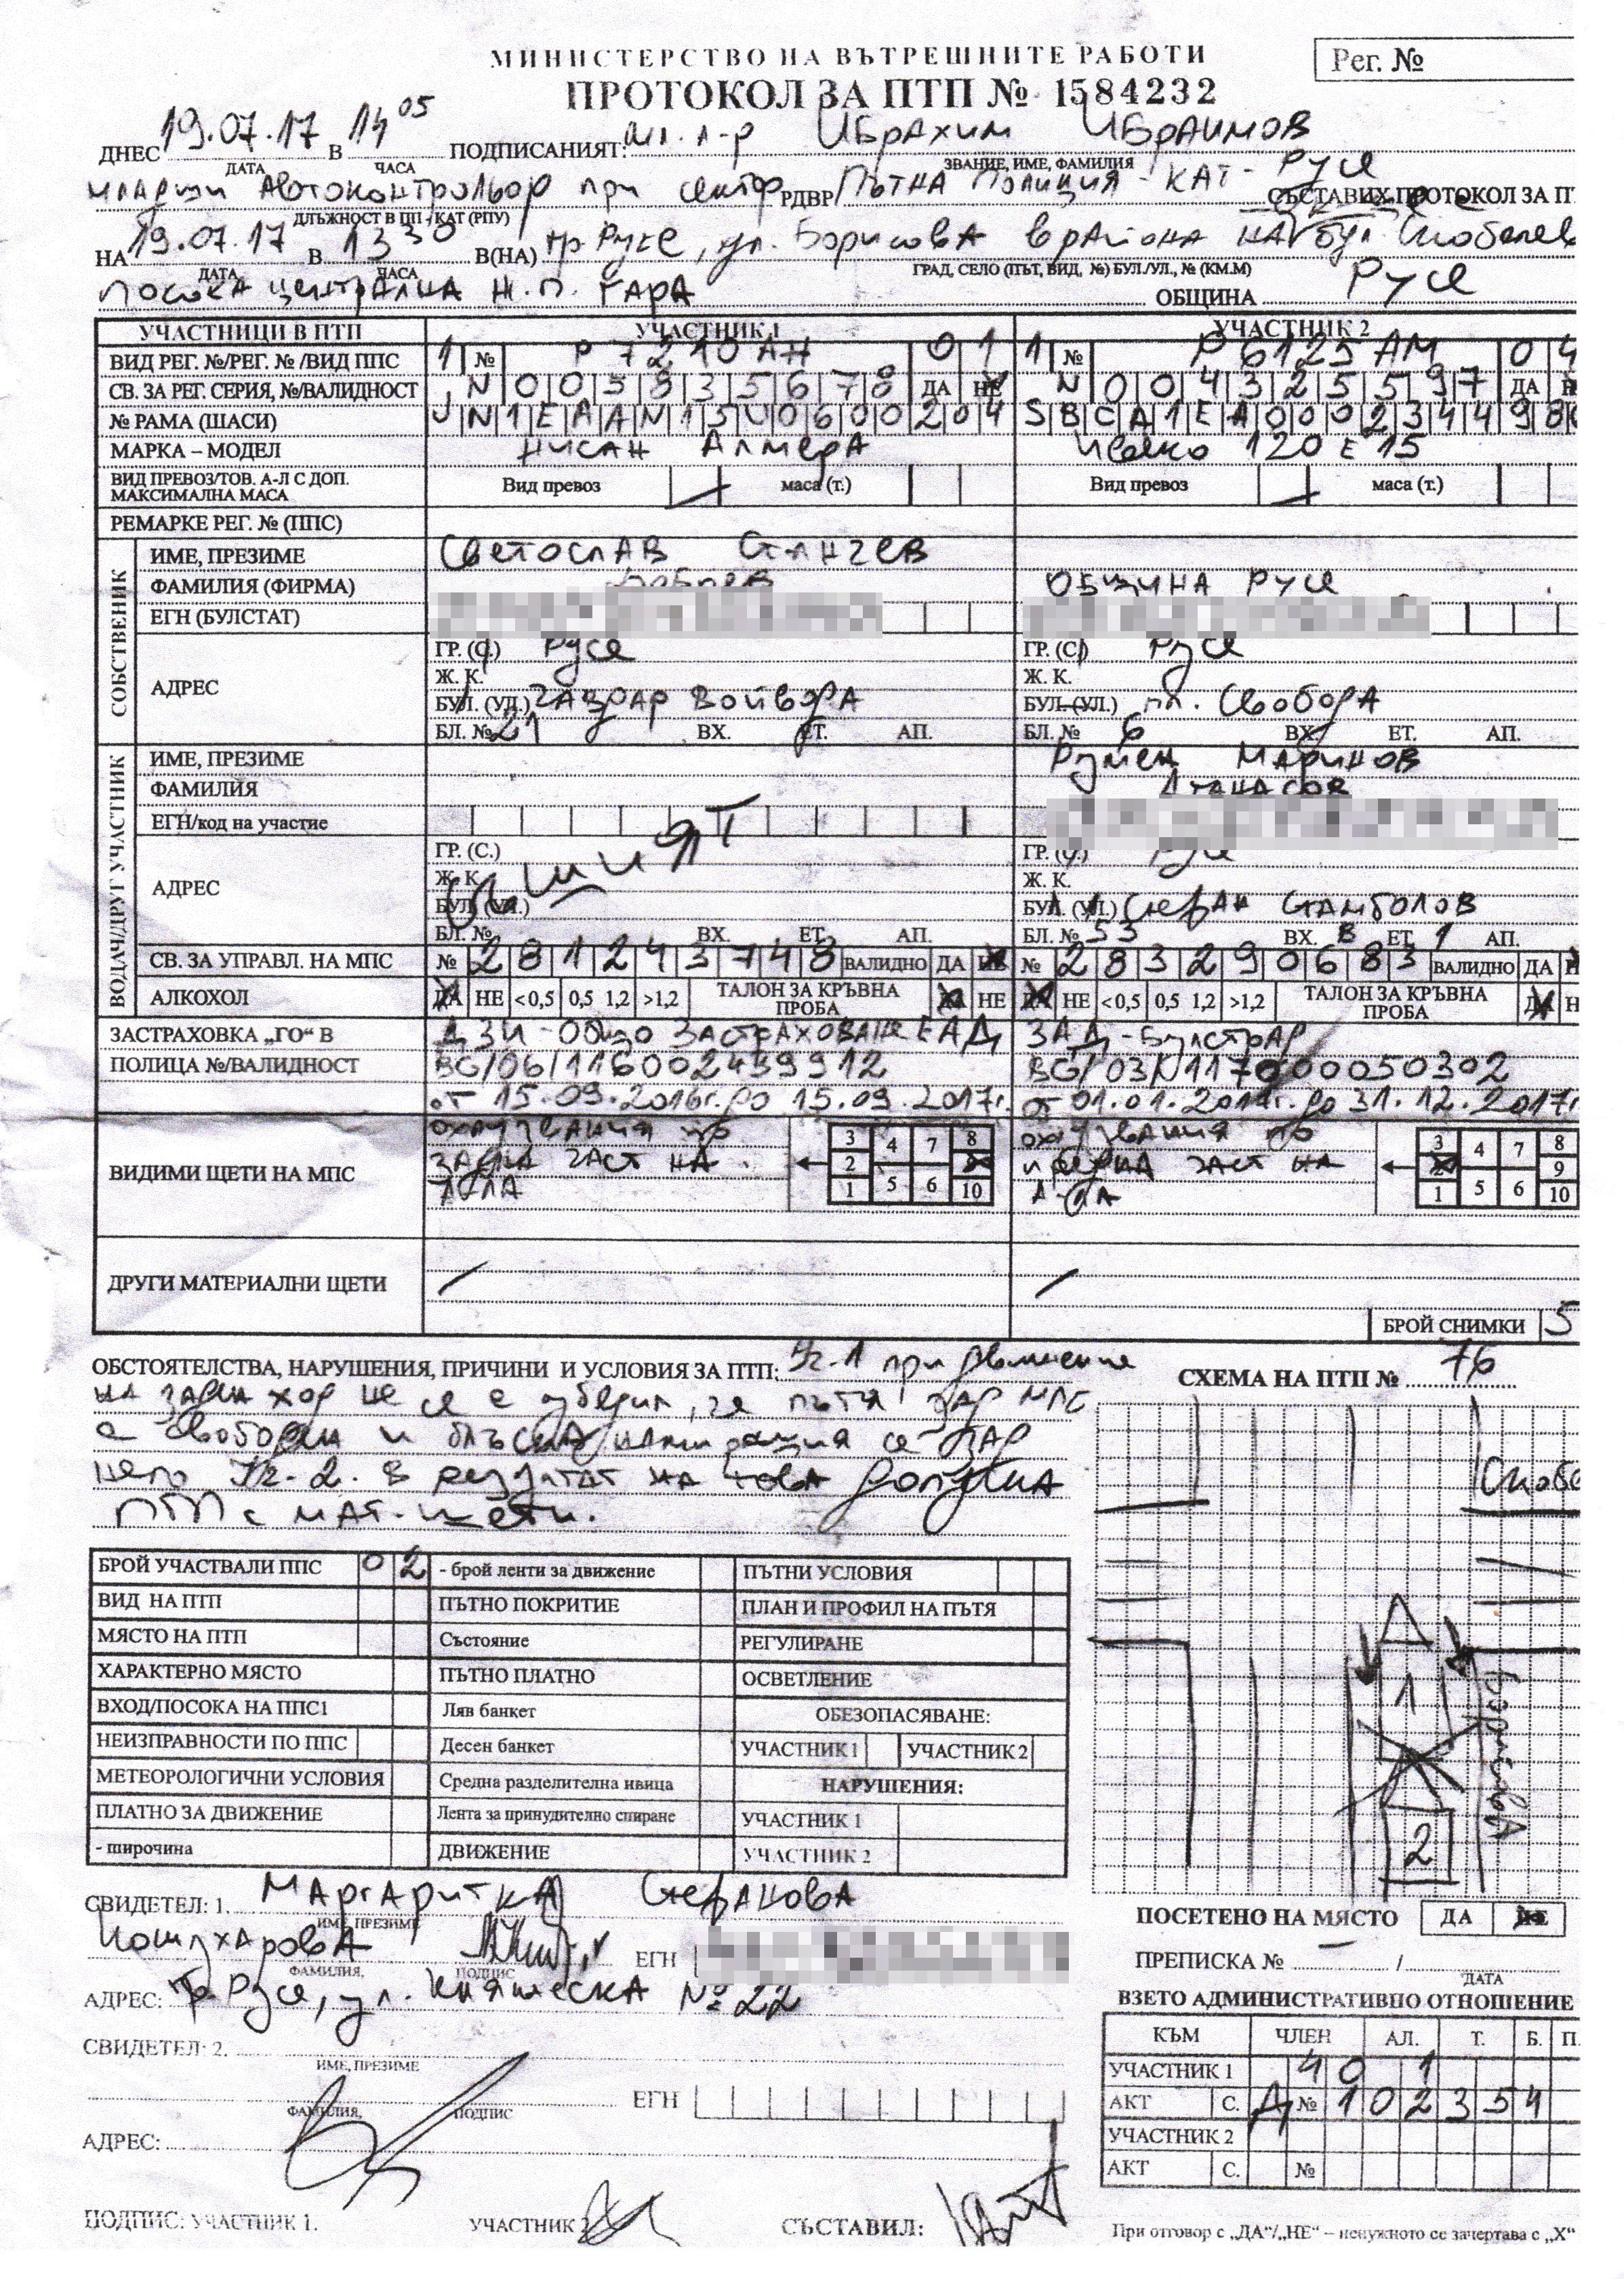 МИНИСТЕРСТВО НА ВЪТРЕШНИТЕ РАБОТИ
Рег. №
ПРОТОКОЛ ЗА ПТП № 1584232
ДНЕС 19.07.17 В 14 05 ПОДПИСАНИЯТ: мл. л-р Ибрахим Ибраимов
ДАТА ЧАСА ЗВАНИЕ, ИМЕ, ФАМИЛИЯ
младши Автоконтрольор при сектор РДВР Пътна Полиция - КАТ - Русе СЪСТАВИХ ПРОТОКОЛ ЗА ПТ
ДЛЪЖНОСТ В ПП - КАТ (РПУ)
НА 19.07.17 В 13 30 В(НА) гр. Русе, ул. Борисова в района на бул. Скобелев
ДАТА ЧАСА ГРАД, СЕЛО (ПЪТ, ВИД, №) БУЛ./УЛ., № (КМ.М)
посока централна Ж.П. гара ОБЩИНА Русе
УЧАСТНИЦИ В ПТП УЧАСТНИК 1 УЧАСТНИК 2
ВИД РЕГ. №/РЕГ. № /ВИД ППС 1 № Р 7210 АН 01 1 № Р 6125 АМ 04
СВ. ЗА РЕГ. СЕРИЯ, №/ВАЛИДНОСТ N 005835678 ДА НЕ N 004325597 ДА
№ РАМА (ШАСИ) JN1EAAN15U0600204 SBCA1EA000234498
МАРКА – МОДЕЛ Нисан Алмера Ивеко 120 Е 15
ВИД ПРЕВОЗ/ТОВ. А-Л С ДОП. МАКСИМАЛНА МАСА Вид превоз маса (т.) Вид превоз маса (т.)
РЕМАРКЕ РЕГ. № (ППС)
СОБСТВЕНИК
ИМЕ, ПРЕЗИМЕ Светослав Станчев
ФАМИЛИЯ (ФИРМА) Община Русе
ЕГН (БУЛСТАТ)
АДРЕС
ГР. (С.) Русе ГР. (С.) Русе
Ж. К. Ж. К.
БУЛ. (УЛ.) Чавдар Войвода БУЛ. (УЛ.) пл. Свобода
БЛ. № 21 ВХ. ЕТ. АП. БЛ. № 6 ВХ. ЕТ. АП.
ВОДАЧ/ДРУГ УЧАСТНИК
ИМЕ, ПРЕЗИМЕ Румен Маринов
ФАМИЛИЯ Атанасов
ЕГН/код на участие
АДРЕС
Същият
ГР. (С.) ГР. (С.) Русе
Ж. К. Ж. К.
БУЛ. (УЛ.) БУЛ. (УЛ.) Стефан Стамболов
БЛ. № ВХ. ЕТ. АП. БЛ. № 53 ВХ. В ЕТ. 1 АП.
СВ. ЗА УПРАВЛ. НА МПС № 281243748 ВАЛИДНО ДА НЕ № 283290683 ВАЛИДНО ДА
АЛКОХОЛ ДА НЕ <0,5 0,5 1,2 >1,2 ТАЛОН ЗА КРЪВНА ПРОБА ДА НЕ ДА НЕ <0,5 0,5 1,2 >1,2 ТАЛОН ЗА КРЪВНА ПРОБА ДА Н
ЗАСТРАХОВКА „ГО“ В ДЗИ - Общо Застраховане ЕАД ЗАД - Булстрад
ПОЛИЦА №/ВАЛИДНОСТ BG/06/116002499912 BG/03/117000050302
от 15.09.2016г. до 15.09.2017г. от 01.01.2017г. до 31.12.2017г.
ВИДИМИ ЩЕТИ НА МПС
охлузвания по охлузвания по
задна част на предна част на
а-ла
3 4 7 8 3 4 7 8
2 2 9
1 5 6 10 1 5 6 10
ДРУГИ МАТЕРИАЛНИ ЩЕТИ
БРОЙ СНИМКИ 5
ОБСТОЯТЕЛСТВА, НАРУШЕНИЯ, ПРИЧИНИ И УСЛОВИЯ ЗА ПТП: Уч-1 при движение
на заден ход не се е убедил, че пътя зад МПС
е свободен и блъска зад
него Уч-2. В резултат на това допуска
ПТП с мат. щети.
СХЕМА НА ПТП № 76
Скобе
1
Борисова
2
БРОЙ УЧАСТВАЛИ ППС 02 - брой ленти за движение ПЪТНИ УСЛОВИЯ
ВИД НА ПТП ПЪТНО ПОКРИТИЕ ПЛАН И ПРОФИЛ НА ПЪТЯ
МЯСТО НА ПТП Състояние РЕГУЛИРАНЕ
ХАРАКТЕРНО МЯСТО ПЪТНО ПЛАТНО ОСВЕТЛЕНИЕ
ВХОД/ПОСОКА НА ППС1 Ляв банкет ОБЕЗОПАСЯВАНЕ:
НЕИЗПРАВНОСТИ ПО ППС Десен банкет УЧАСТНИК 1 УЧАСТНИК 2
МЕТЕОРОЛОГИЧНИ УСЛОВИЯ Средна разделителна ивица НАРУШЕНИЯ:
ПЛАТНО ЗА ДВИЖЕНИЕ Лента за принудително спиране УЧАСТНИК 1
- широчина ДВИЖЕНИЕ УЧАСТНИК 2
СВИДЕТЕЛ: 1. Маргаритка Стефанова
ИМЕ, ПРЕЗИМЕ
Кошухарова ЕГН
ФАМИЛИЯ, ПОДПИС
АДРЕС: гр. Русе, ул. Княжеска № 22
СВИДЕТЕЛ: 2.
ИМЕ, ПРЕЗИМЕ
ЕГН
ФАМИЛИЯ, ПОДПИС
АДРЕС:
ПОДПИС: УЧАСТНИК 1. УЧАСТНИК 2 СЪСТАВИЛ:
ПОСЕТЕНО НА МЯСТО ДА НЕ
ПРЕПИСКА № /
ДАТА
ВЗЕТО АДМИНИСТРАТИВНО ОТНОШЕНИЕ
КЪМ ЧЛЕН АЛ. Т. Б. П.
УЧАСТНИК 1 40 1
АКТ С. Д № 102354
УЧАСТНИК 2
АКТ С. №
При отговор с „ДА“/„НЕ“ – ненужното се зачертава с „Х“